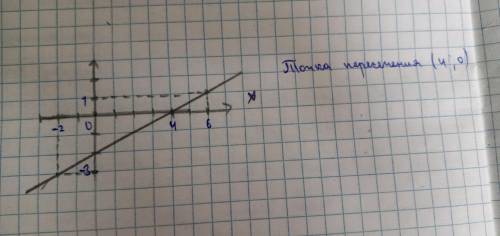 Точка пересечения (4;0)
1
x
-2 0 4 6
-3